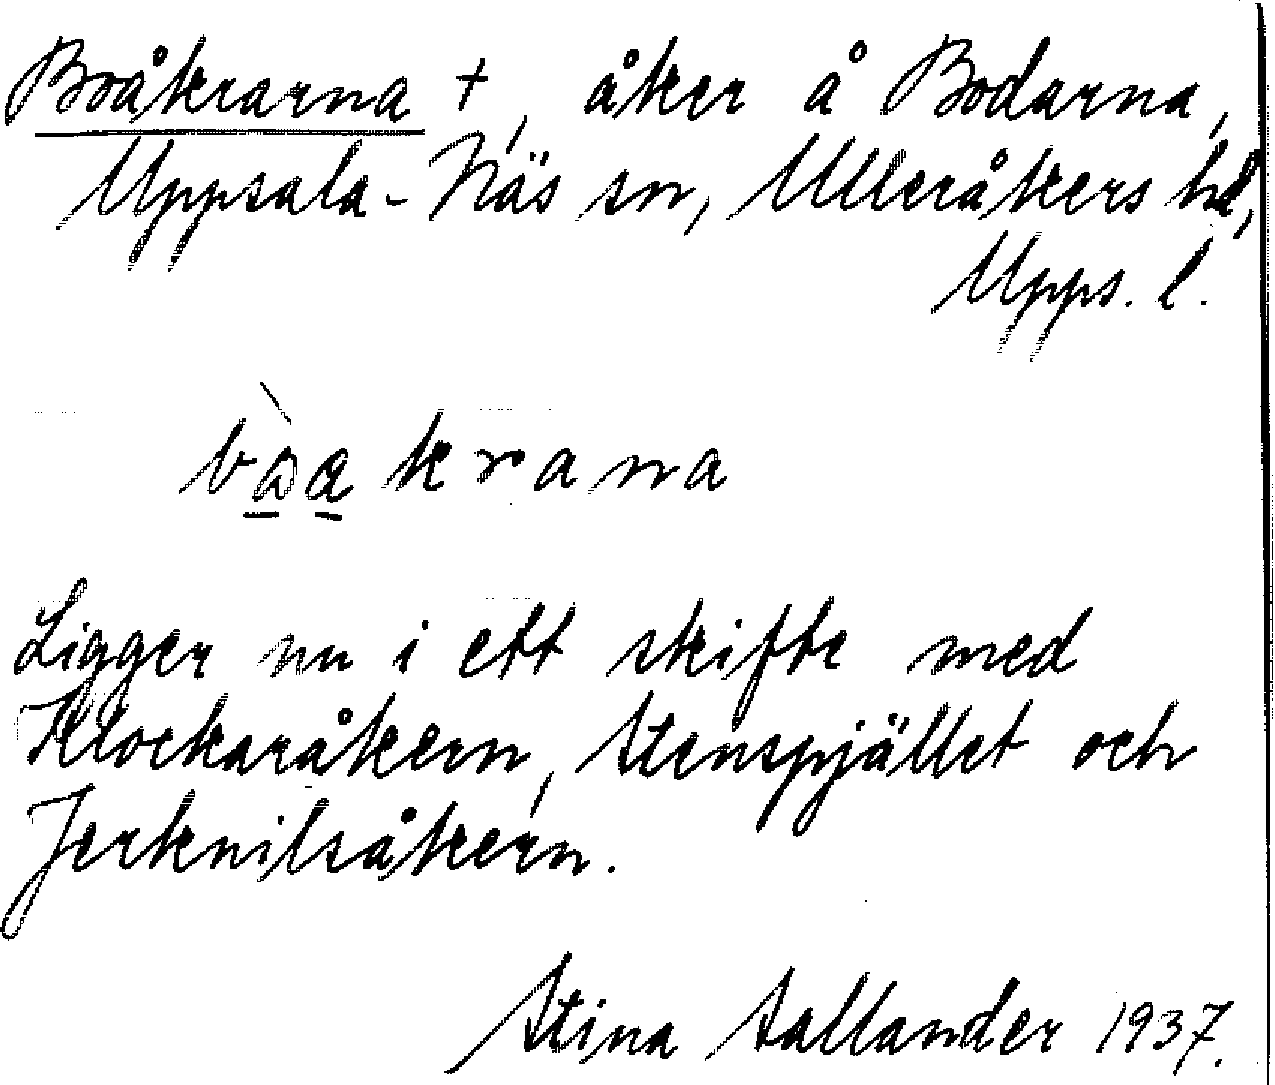 Boåkrarna +, åker å Bodarna,
Uppsala-Näs sn, Ulleråkers hd,
Upps. l.
Ligger nu i ett skifte med
Klockaråkern, Stenspjället och
Jerknilsåkern.
Stina Sallander 1937.